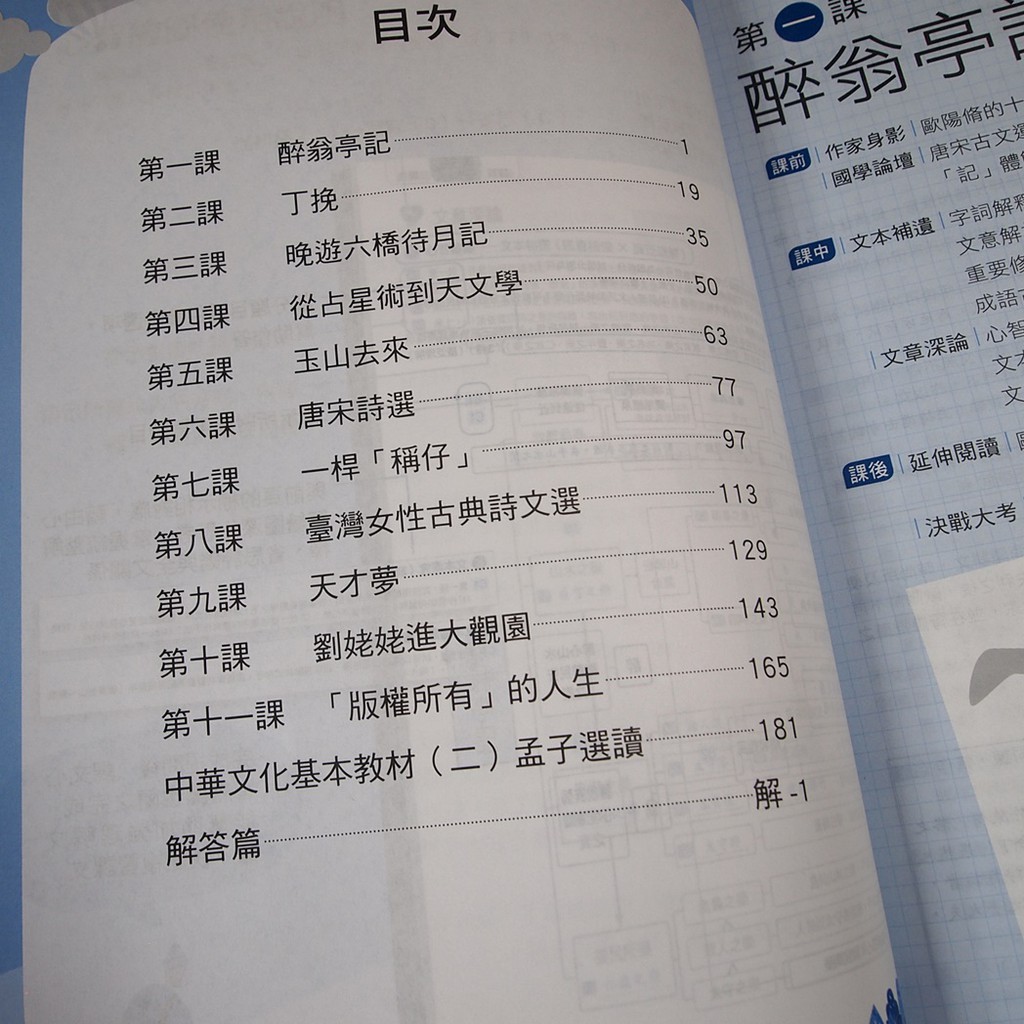 目次
第一課 醉翁亭記 1
第二課 丁挽 19
第三課 晚遊六橋待月記 35
第四課 從占星術到天文學 50
第五課 玉山去來 63
第六課 唐宋詩選 77
第七課 一桿「稱仔」 97
第八課 臺灣女性古典詩文選 113
第九課 天才夢 129
第十課 劉姥姥進大觀園 143
第十一課 「版權所有」的人生 165
中華文化基本教材（二）孟子選讀 181
解答篇 解-1
第一課
醉翁亭
課前 作家身影 歐陽脩的十
國學論壇 唐宋古文運
「記」體
課中 文本補遺 字詞解釋
文意解
重要修
成語
文章深論 心智
文本
文
課後 延伸閱讀
決戰大考